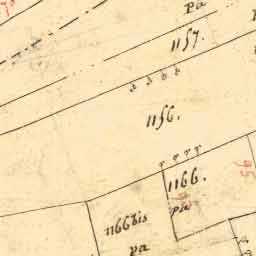 pa
1157.
1156.
1166.
pa
95
1166bis
pa